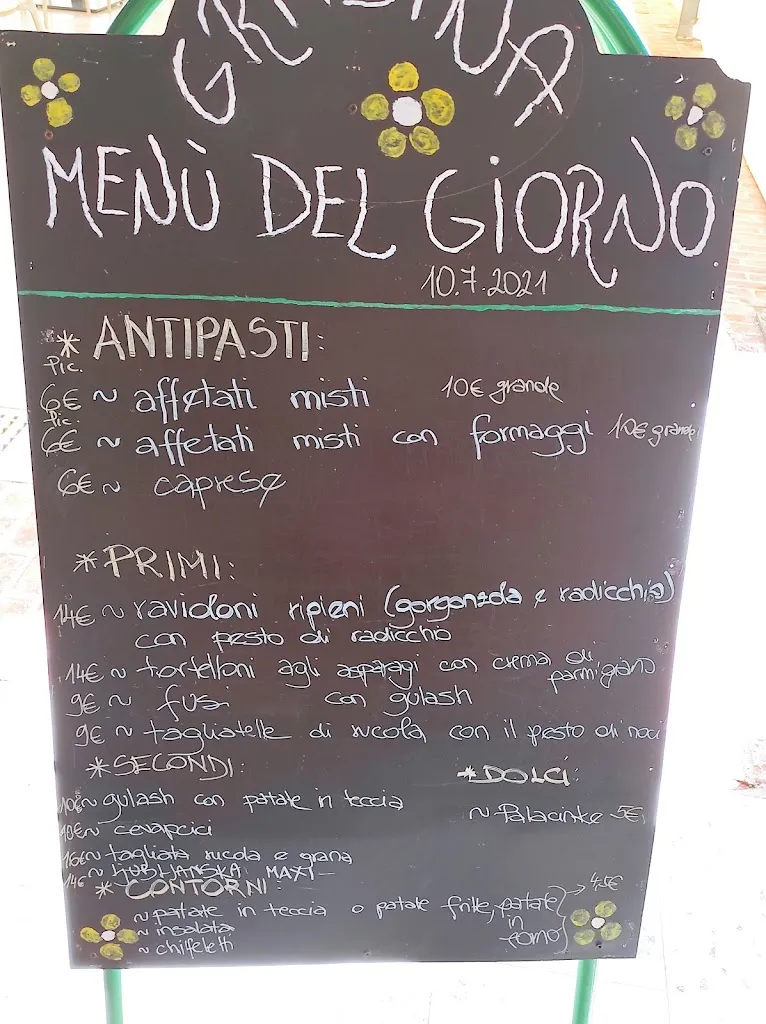 GRADINA
MENÙ DEL GIORNO
10.7.2021
* ANTIPASTI:
Pic.
6€ ~ affetati misti 10€ grande
Pic
6€ ~ affetati misti con formaggi 10€ grande
6€ ~ caprese
* PRIMI:
14€ ~ ravioloni ripieni (gorgonzola e radicchio)
con pesto di radicchio
14€ ~ tortelloni agli asparagi con crema di
parmigiano
9€ ~ fusi con gulash
9€ ~ tagliatelle di rucola con il pesto di noci
* SECONDI: * DOLCI:
10€ ~ gulash con patate in teccia ~ Palacinke 5€
10€ ~ cevapcici
16€ ~ tagliata rucola e grana
14€ ~ LJUBLJANSKA MAXI –
* CONTORNI: → 4,5€
~ patate in teccia o patate fritte, patate
~ insalata in
~ chifeletti forno